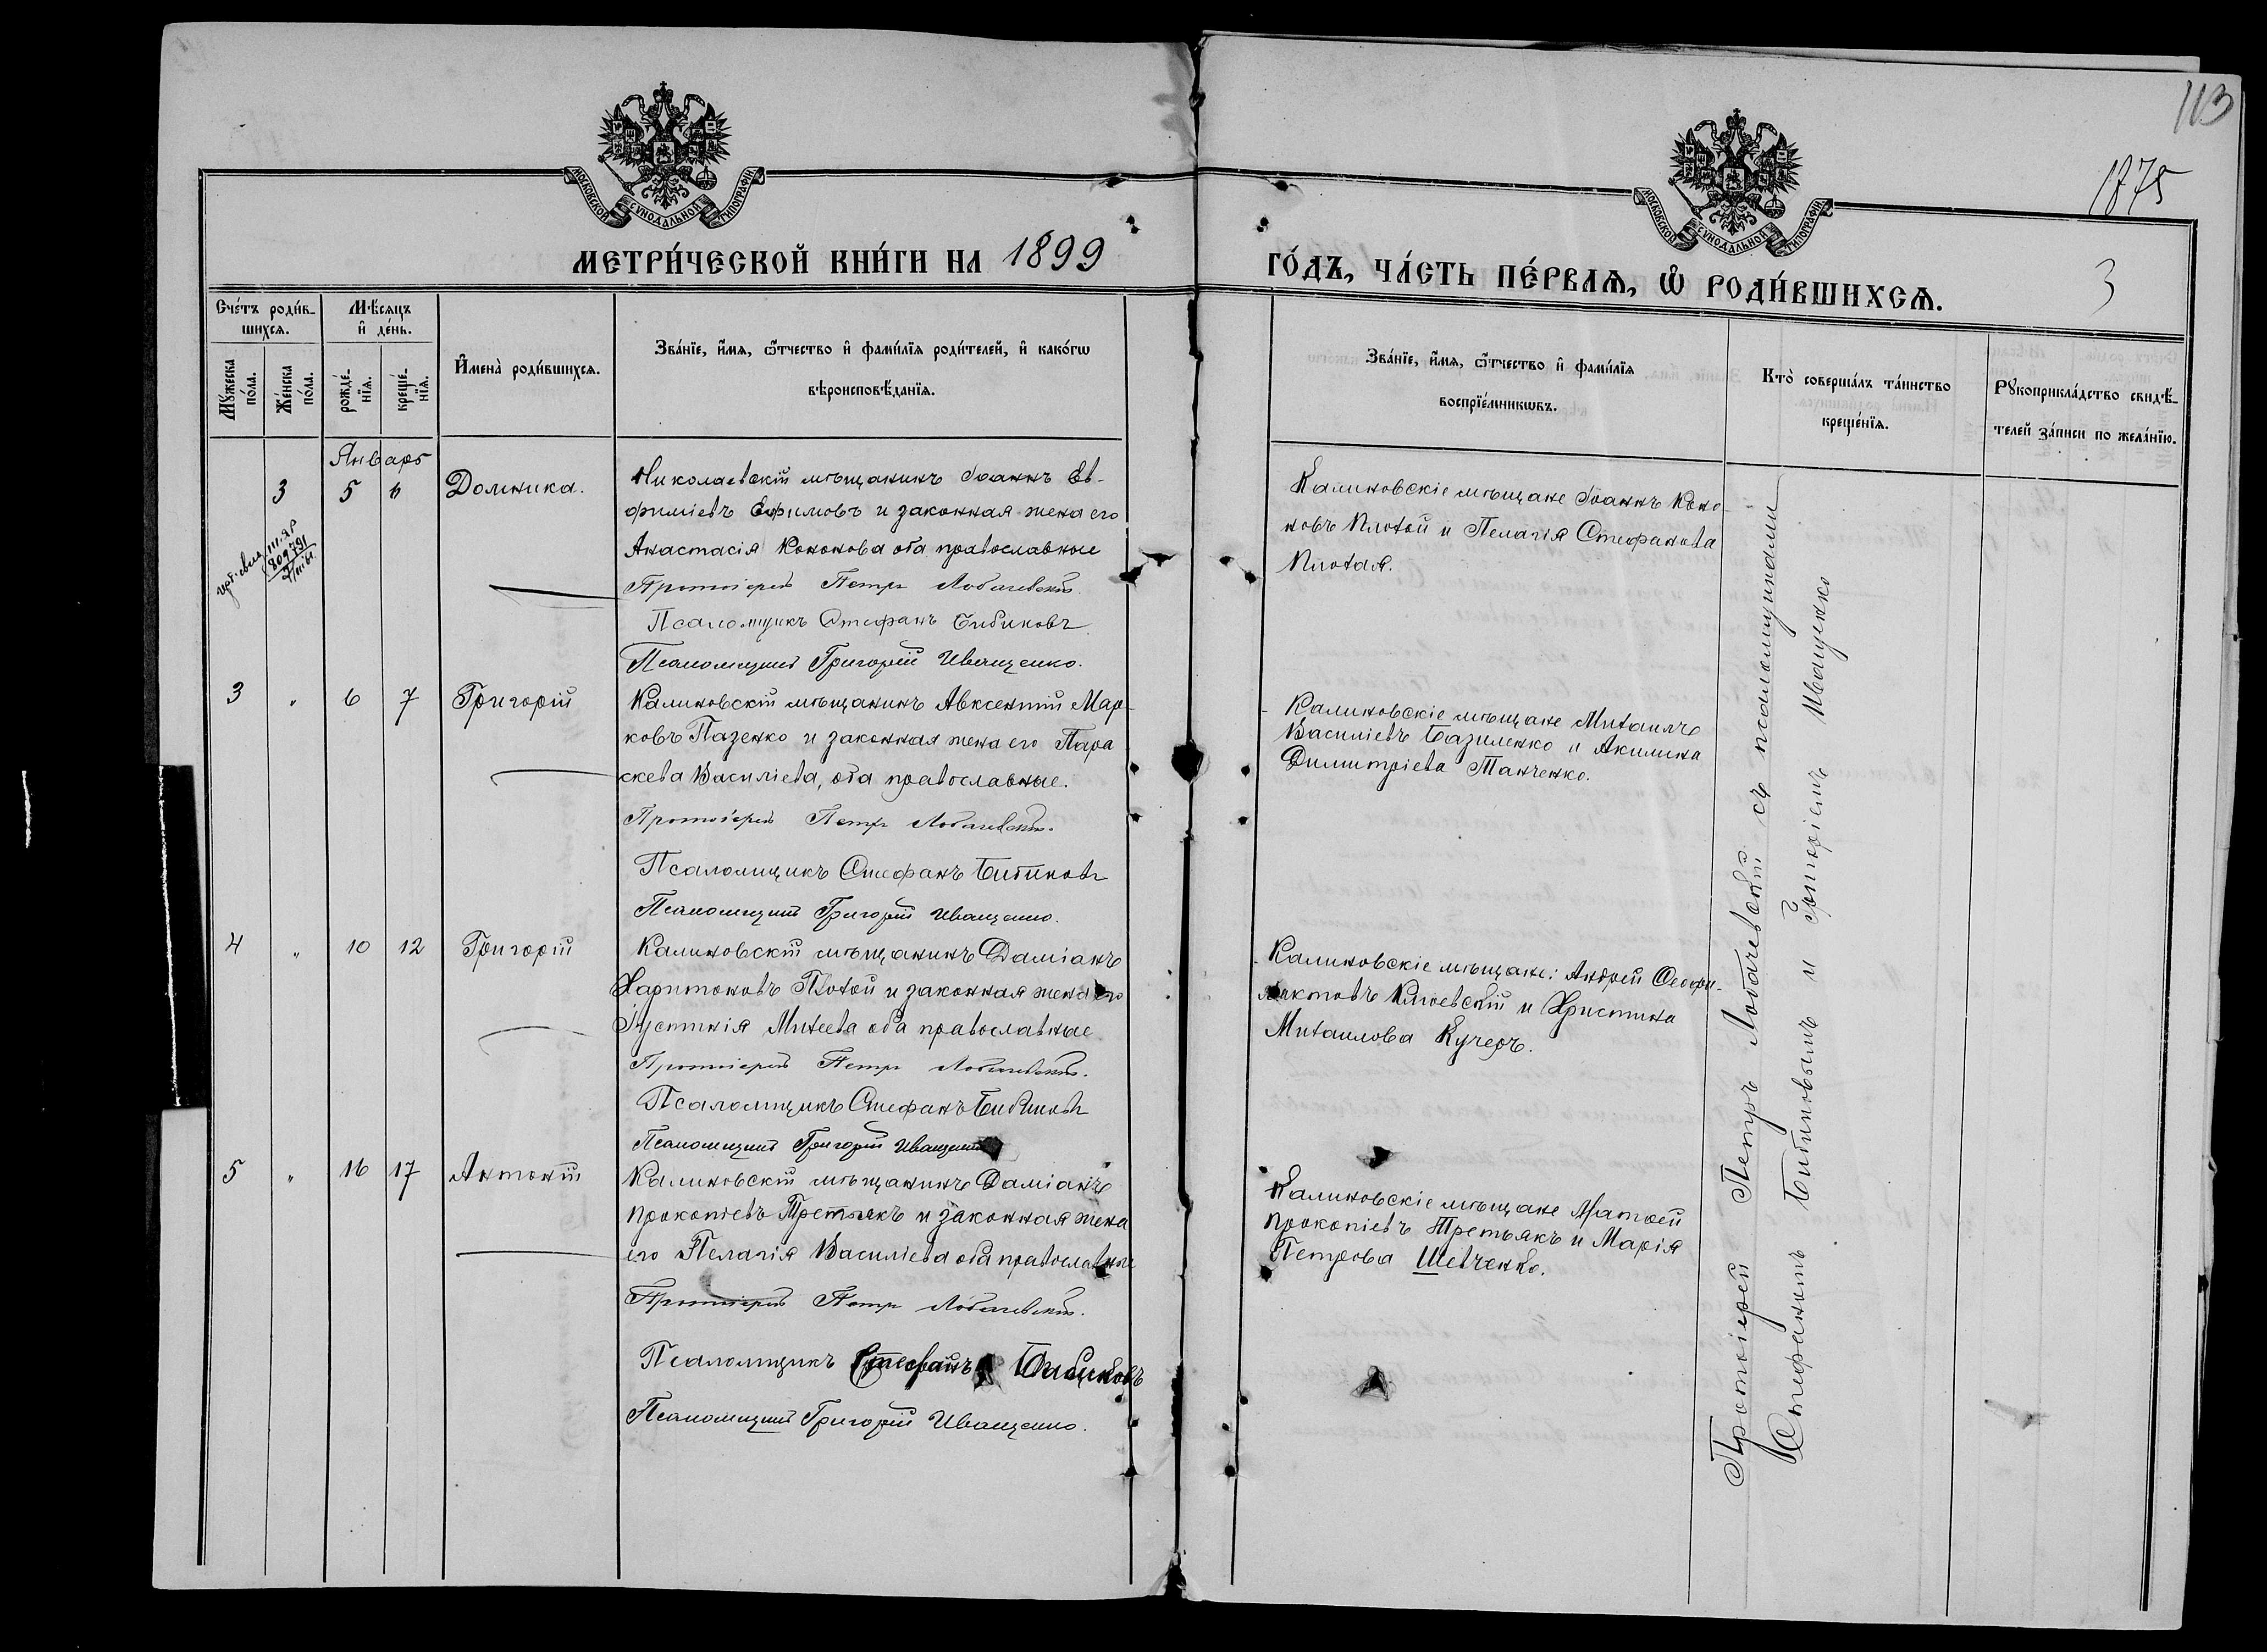 113
1875
3
МОСКОВСКОЙ СУНОДАЛЬНОЙ ТИПОГРАФІИ
МОСКОВСКОЙ СУНОДАЛЬНОЙ ТИПОГРАФІИ
МЕТРИ́ЧЕСКОЙ КНИ́ГИ НА 1899
ГО́ДЪ, ЧА́СТЬ ПЕ́РВАѦ, Ѡ РОДИ́ВШИХСѦ.
Сче́тъ роди́в-
шихсѧ.
Мѣ́сѧцъ
и҆ де́нь.
Мꙋ́жеска
по́ла.
Же́нска
по́ла.
рожде́-
нїѧ.
креще́-
нїѧ.
И҆мена̀ роди́вшихсѧ.
Зва́нїе, и҆́мѧ, ѻ҆́тчество и҆ фами́лїѧ роди́телей, и҆ како́гѡ
вѣроисповѣ́данїѧ.
Зва́нїе, и҆́мѧ, ѻ҆́тчество и҆ фами́лїѧ
воспрїе́мникѡвъ.
Кто̀ соверша́лъ та́инство
креще́нїѧ.
Рꙋкоприкла́дство свидѣ́-
телей за́писи по жела́нїю.
Январь
3 5 6 Домника.
Николаевскій мѣщанинъ Іоаннъ Ев-
фиміевъ Ефимовъ и законная жена его
Анастасія Кононова оба православные
Протоіерей Петръ Лобачевскій.
Псаломщикъ Стефанъ Бибиковъ
Псаломщикъ Григорій Иващенко.
Калиновскіе мѣщане Іоаннъ Коно-
новъ Плохой и Пелагія Стефанова
Плохая.
3 " 6 7 Григорій
Калиновскій мѣщанинъ Авксентій Мар-
ковъ Пазенко и законная жена его Пара
скева Василіева, оба православные.
Протоіерей Петръ Лобачевскій.
Псаломщикъ Стефанъ Бибиковъ
Псаломщикъ Григорій Иващенко.
Калиновскіе мѣщане Михаилъ
Василіевъ Базиленко и Акилина
Димитріева Танченко.
4 " 10 12 Григорій
Калиновскій мѣщанинъ Даміанъ
Харитоновъ Плохой и законная жена его
Іустинія Михеева оба православные
Протоіерей Петръ Лобачевскій.
Псаломщикъ Стефанъ Бибиковъ
Псаломщикъ Григорій Иващенко
Калиновскіе мѣщане: Андрей Ѳеофи-
лактовъ и Христина
Михаилова Кучеръ.
5 " 16 17 Антоній
Калиновскій мѣщанинъ Даміанъ
Прокопіевъ Третьякъ и законная жена
его Пелагія Василіева оба православные
Протоіерей Петръ Лобачевскій.
Псаломщикъ Стефанъ Бибиковъ
Псаломщикъ Григорій Иващенко.
Калиновскіе мѣщане Матѳей
Прокопіевъ Третьякъ и Марія
Петрова Шевченко.
Протоіерей Петръ Лобачевскій съ псаломщиками
Стефаномъ Бибиковымъ и Григоріемъ Иващенко